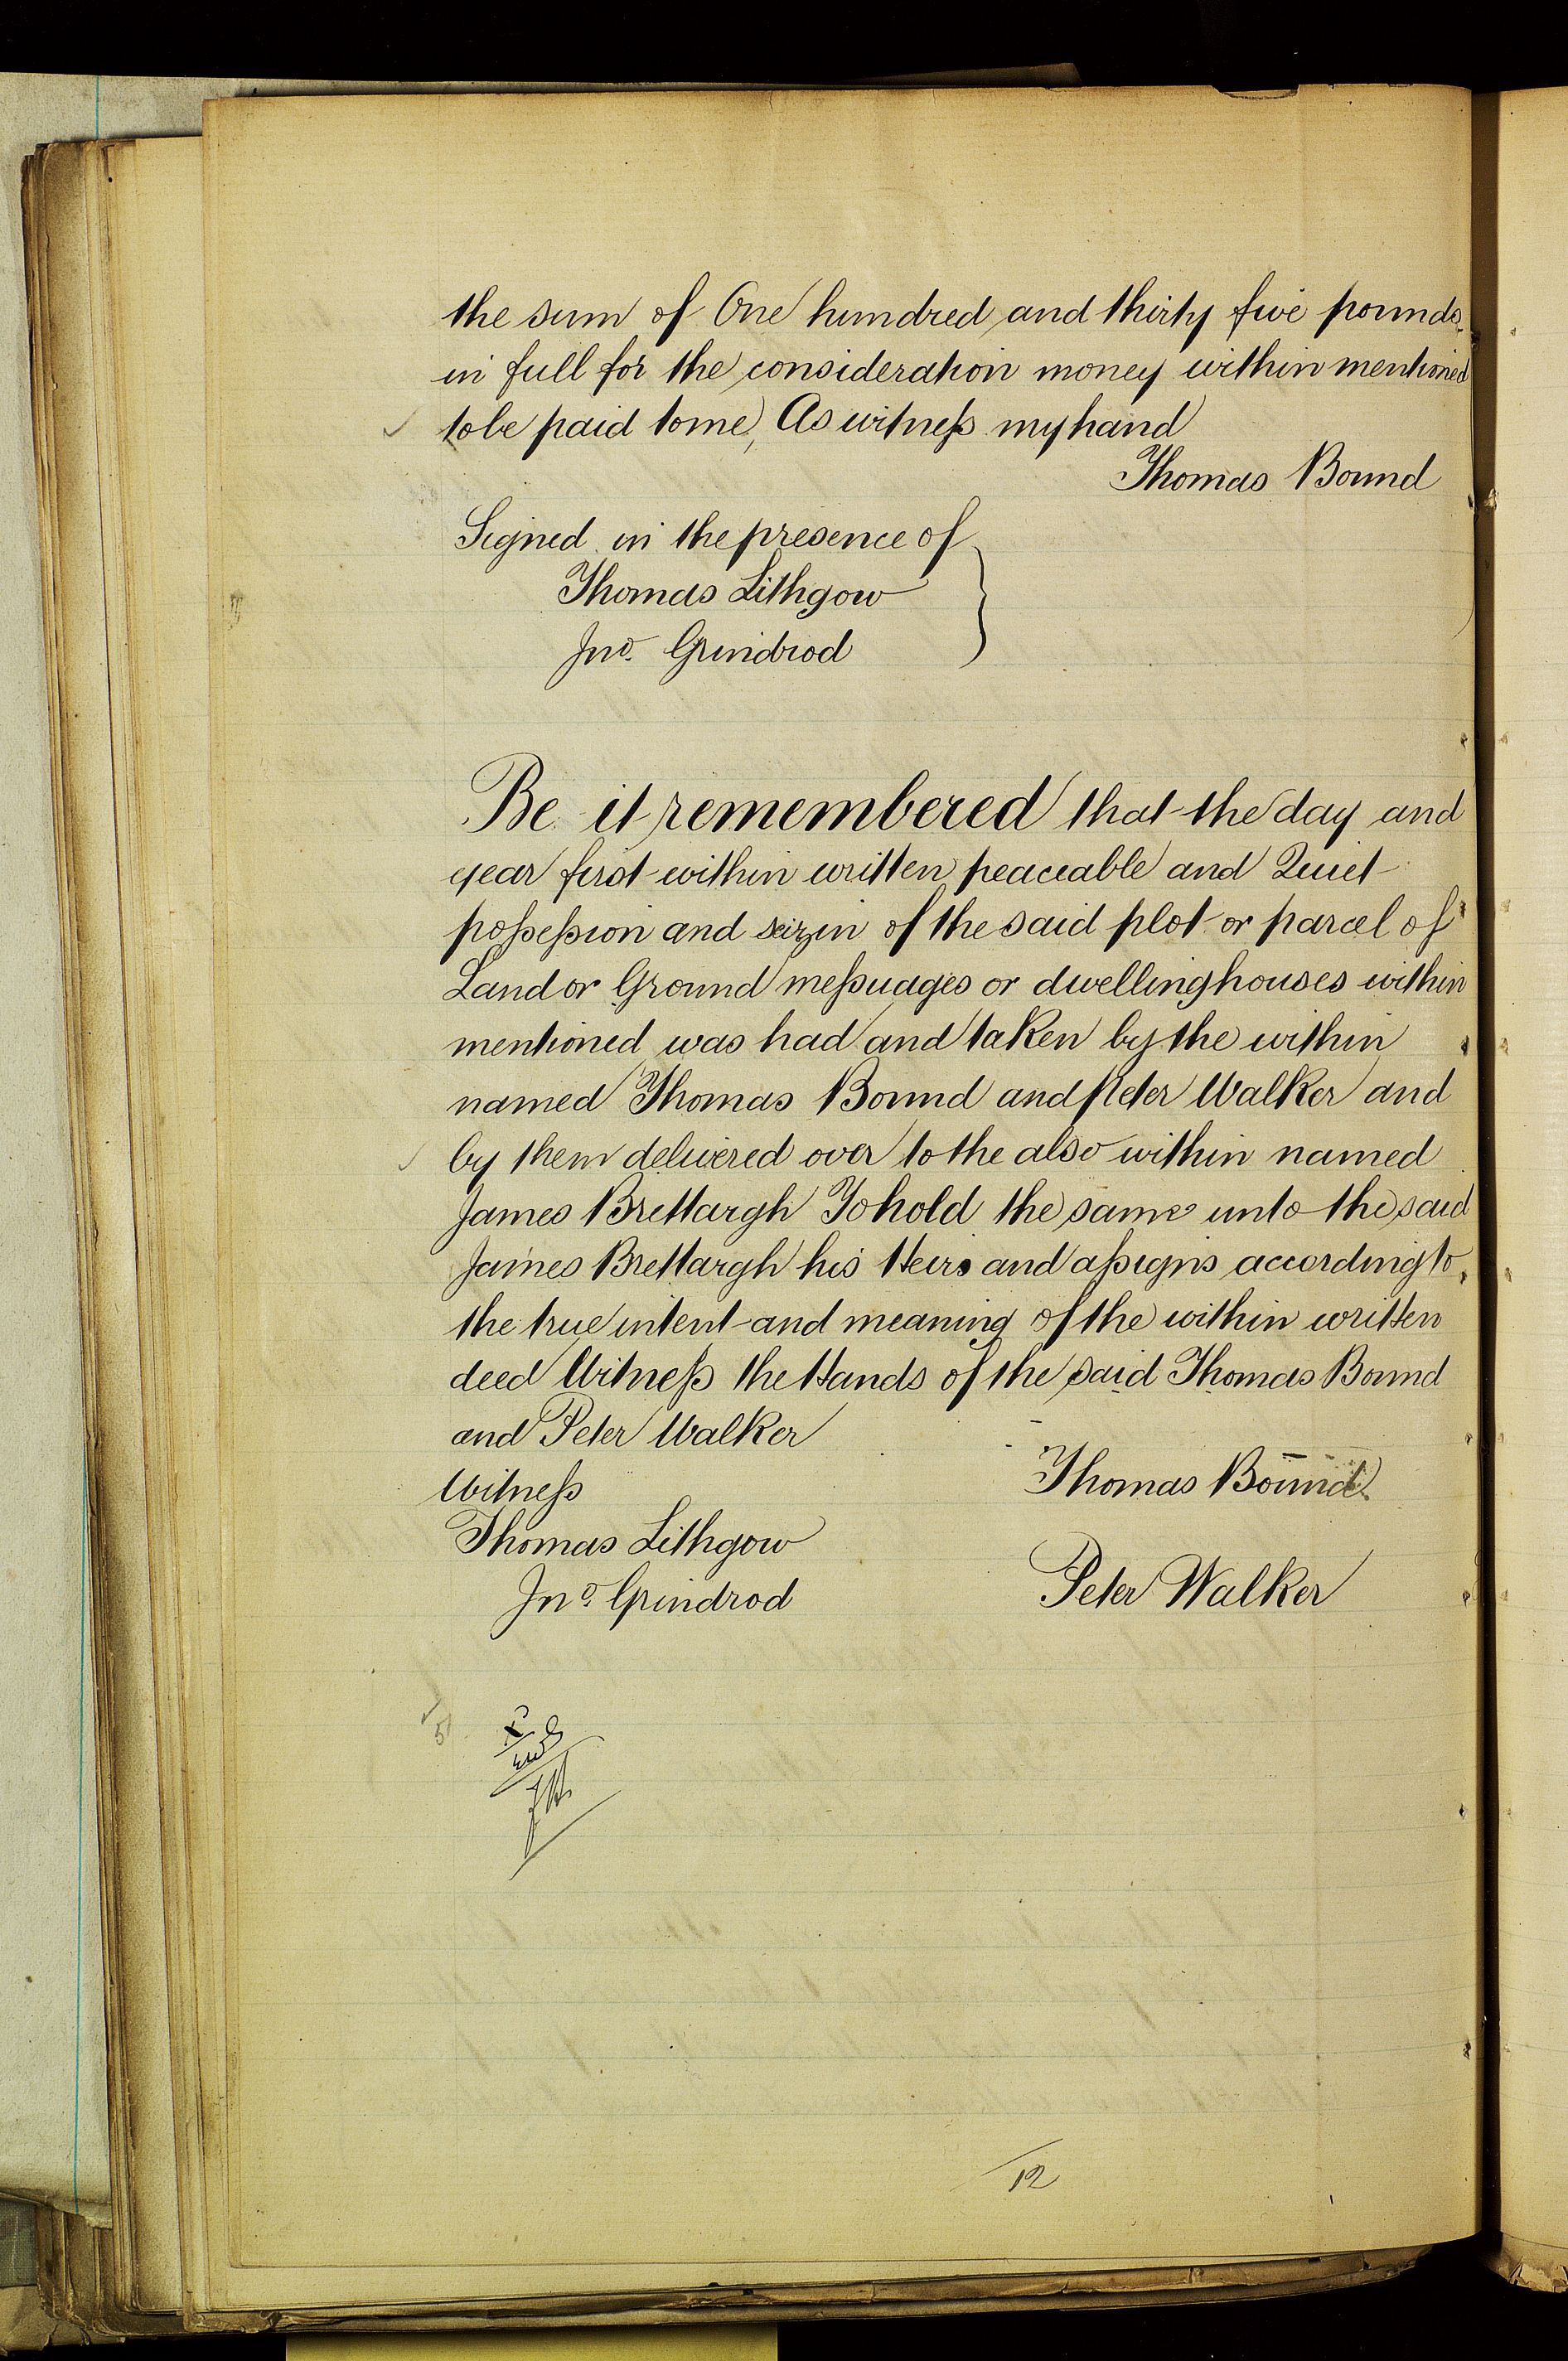 the sum of One hundred and thirty five pounds
in full for the consideration money within mentioned
to be paid to me, As witneſs my hand
Thomas Bound
Signed in the presence of
Thomas Lithgow
Jno. Grindrod
Be it remembered that the day and
year first within written peaceable and Quiet
poſseſsion and seizin of the said plot or parcel of
Land or Ground meſsuages or dwellinghouses within
mentioned was had and taken by the within
named Thomas Bound and Peter Walker and
by them delivered over to the also within named
James Brettargh To hold the same unto the said
James Brettargh his Heirs and aſsigns according to
the true intent and meaning of the within written
deed Witneſs the Hands of the said Thomas Bound
and Peter Walker
Witneſs
Thomas Bound
Thomas Lithgow
Jno. Grindrod
Peter Walker
12